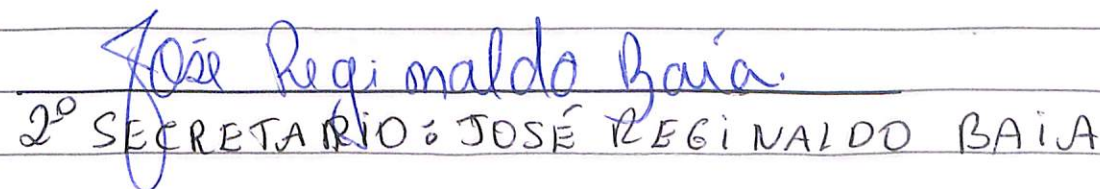 José Reginaldo Baía.
2º SECRETARIO: JOSÉ REGINALDO BAIA